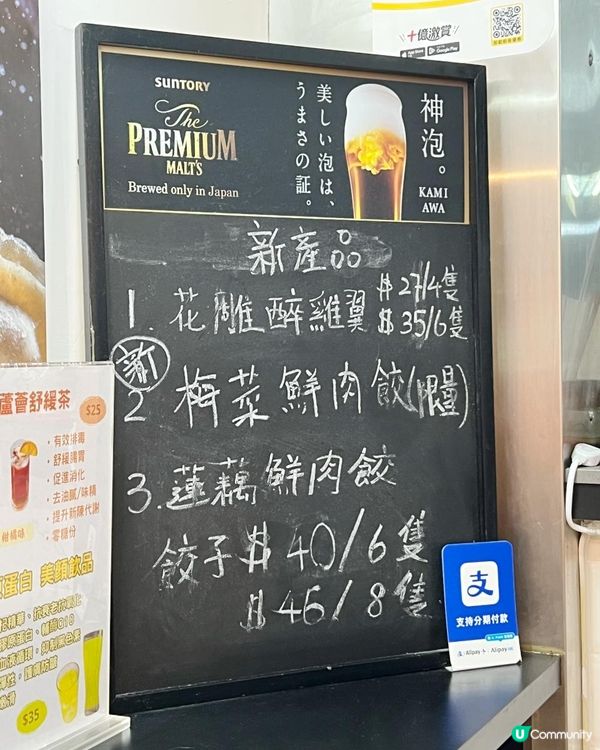 +億激賞
App Store
Google Play
SUNTORY
The
PREMIUM
MALT'S
Brewed only in Japan
美しい泡は、
うまさの証。
神泡。
KAMI
AWA
新產品
1. 花雕醉雞翼 $27/4隻
$35/6隻
新
2 梅菜鮮肉餃(限量)
3. 蓮藕鮮肉餃
餃子 $40/6隻
$46/8隻
蘆薈舒緩茶
$25
・有效排毒
・舒緩腸胃
・促進消化
・去油膩/味精
・提升新陳代謝
・零糖份
柑橘味
蛋白 美顏飲品
$35
支
支持分期付款
Alipay
U Community